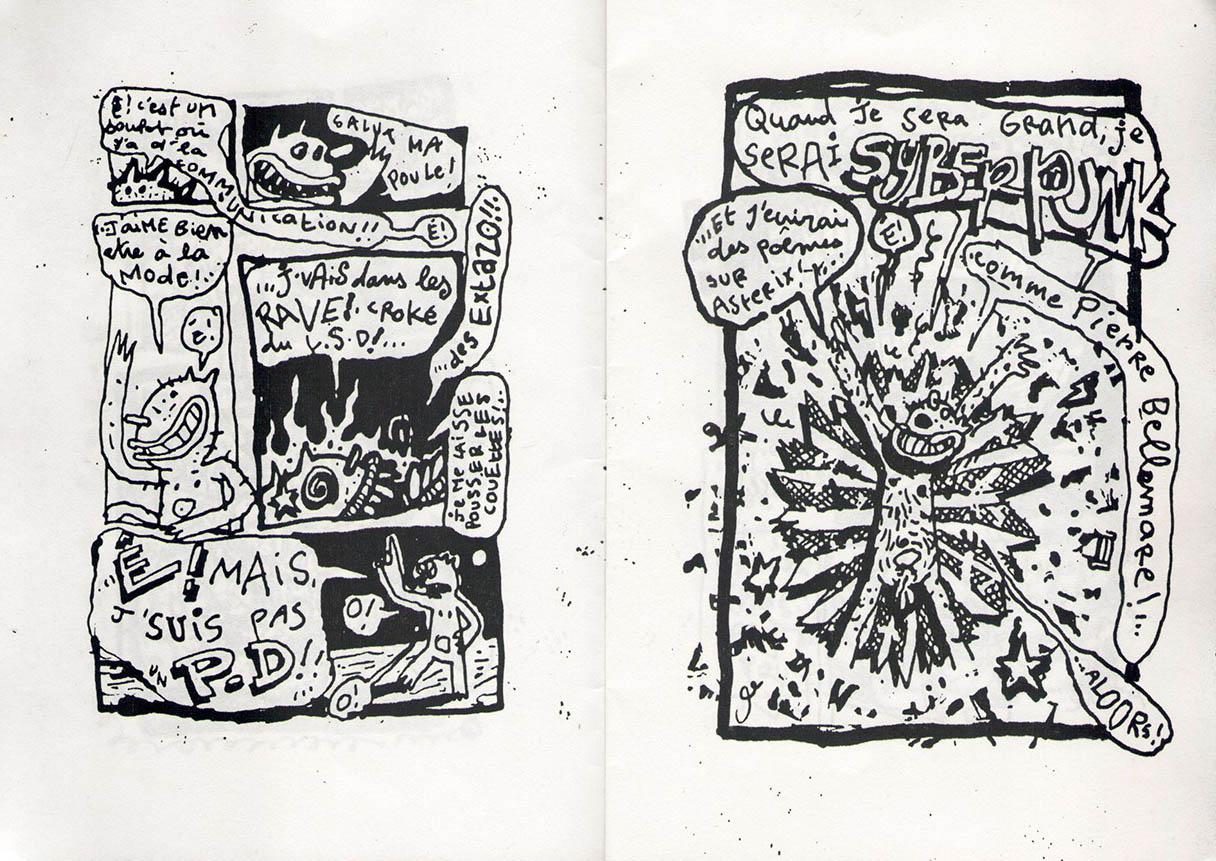 É! c'est un
où
y'a d'la
COMMUNICATION!!
É!
SALUT MA
POULE!
J'AIME BIEN
etre à la
MODE!..
...J'VAIS dans les
RAVE!. CROKÉ
du L.S.D!...
...des EXTAZO!!..
Je ME LAISSE
POUSSER LES
COUETTES!..
É! MAIS
J'SUIS PAS
UN P.D!!
O!
O!
Quand Je sera Grand, je
SERAI SYBER PUNK
...Et J'écrirais
des poêmes
sur
Asterix!..
É!
..comme Pierre Bellemare!...
...ALOORS!